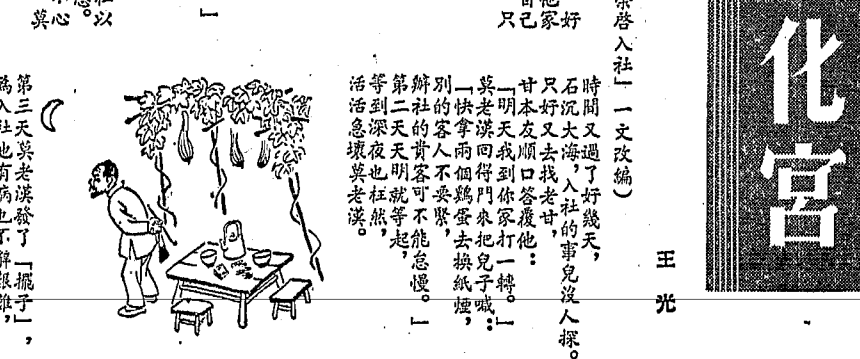 化宮
王光
啓入社」一文改編）
時間又過了好幾天，
石沉大海，入社的事兒沒人探。
只好又去找老甘，
甘本友順口答覆他：
「明天我到你家打一轉。」
莫老漢回得門來把兒子喊：
「快拿兩個鷄蛋去換紙煙，
別的客人不要緊，
辦社的貴客可不能怠慢。」
第二天天明就等起，
等到深夜也枉然，
活活急壞莫老漢。
好
他家
自己
只
」
社以
心
莫
第三天莫老漢發了「擺子」，
入社他有病也不